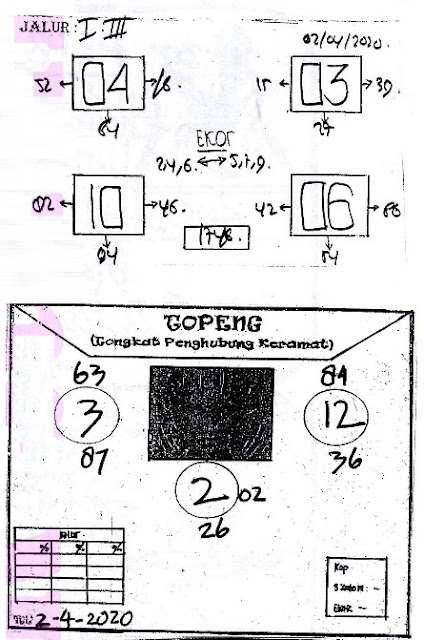 JALUR : I III
02/04/2020.
52 ← 04 → 78.
64
15 ← 03 → 39
27
EKOR
2,4,6. ↔ 5,7,9.
02 ← 10 → 46.
04
1748.
42 ← 06 → 60
54
TOPENG
(Tongkat Penghubung Keramat)
63
3
87
84
12
36
2 02
26
% % %
TGL: 2-4-2020
Kop
EKOR : -